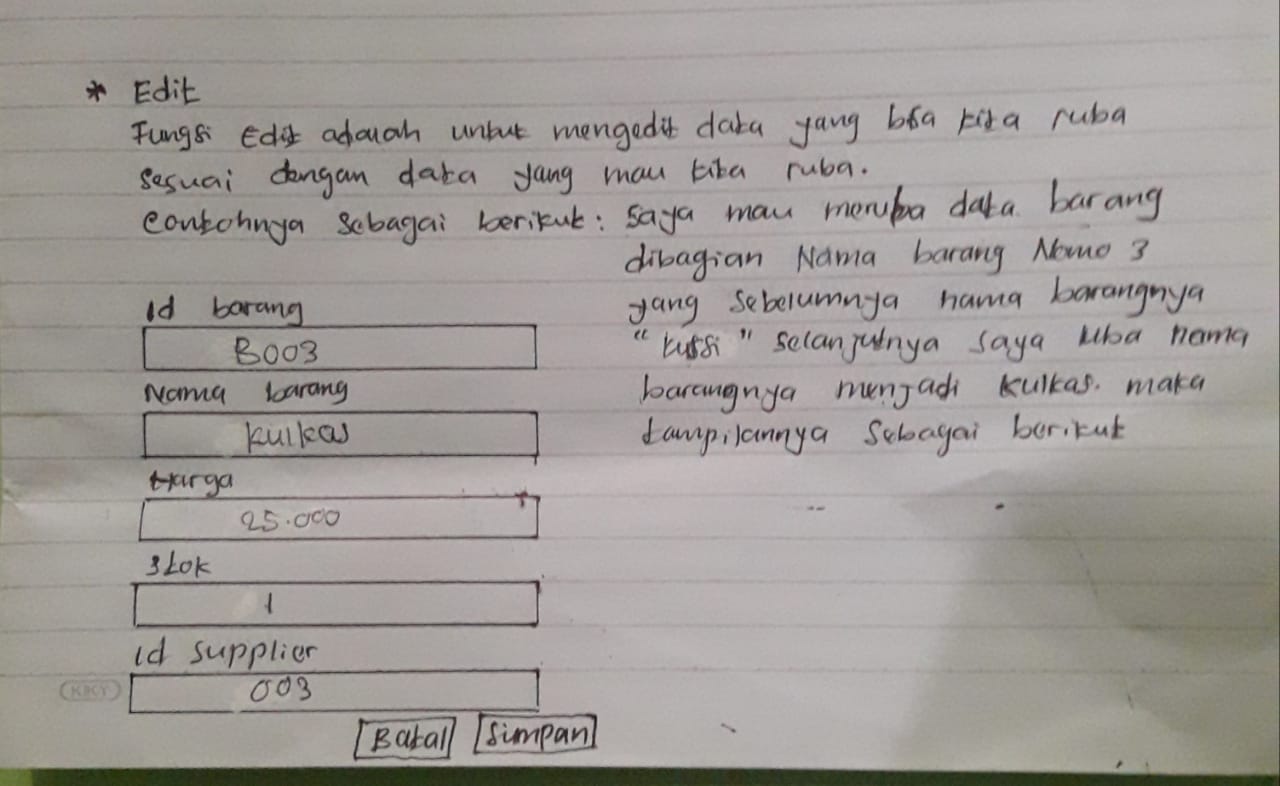 * Edit
Fungsi Edit adalah untuk mengedit data yang bisa kita ruba
sesuai dengan data yang mau kita ruba.
Contohnya sebagai berikut : saya mau meruba data barang
dibagian Nama barang Nomo 3
yang sebelumnya nama barangnya
"kursi" selanjutnya saya uba nama
barangnya menjadi kulkas. maka
tampilannya sebagai berikut
Id barang
B003
Nama barang
kulkas
Harga
25.000
Stok
1
id supplier
003
Batal Simpan
KIKY